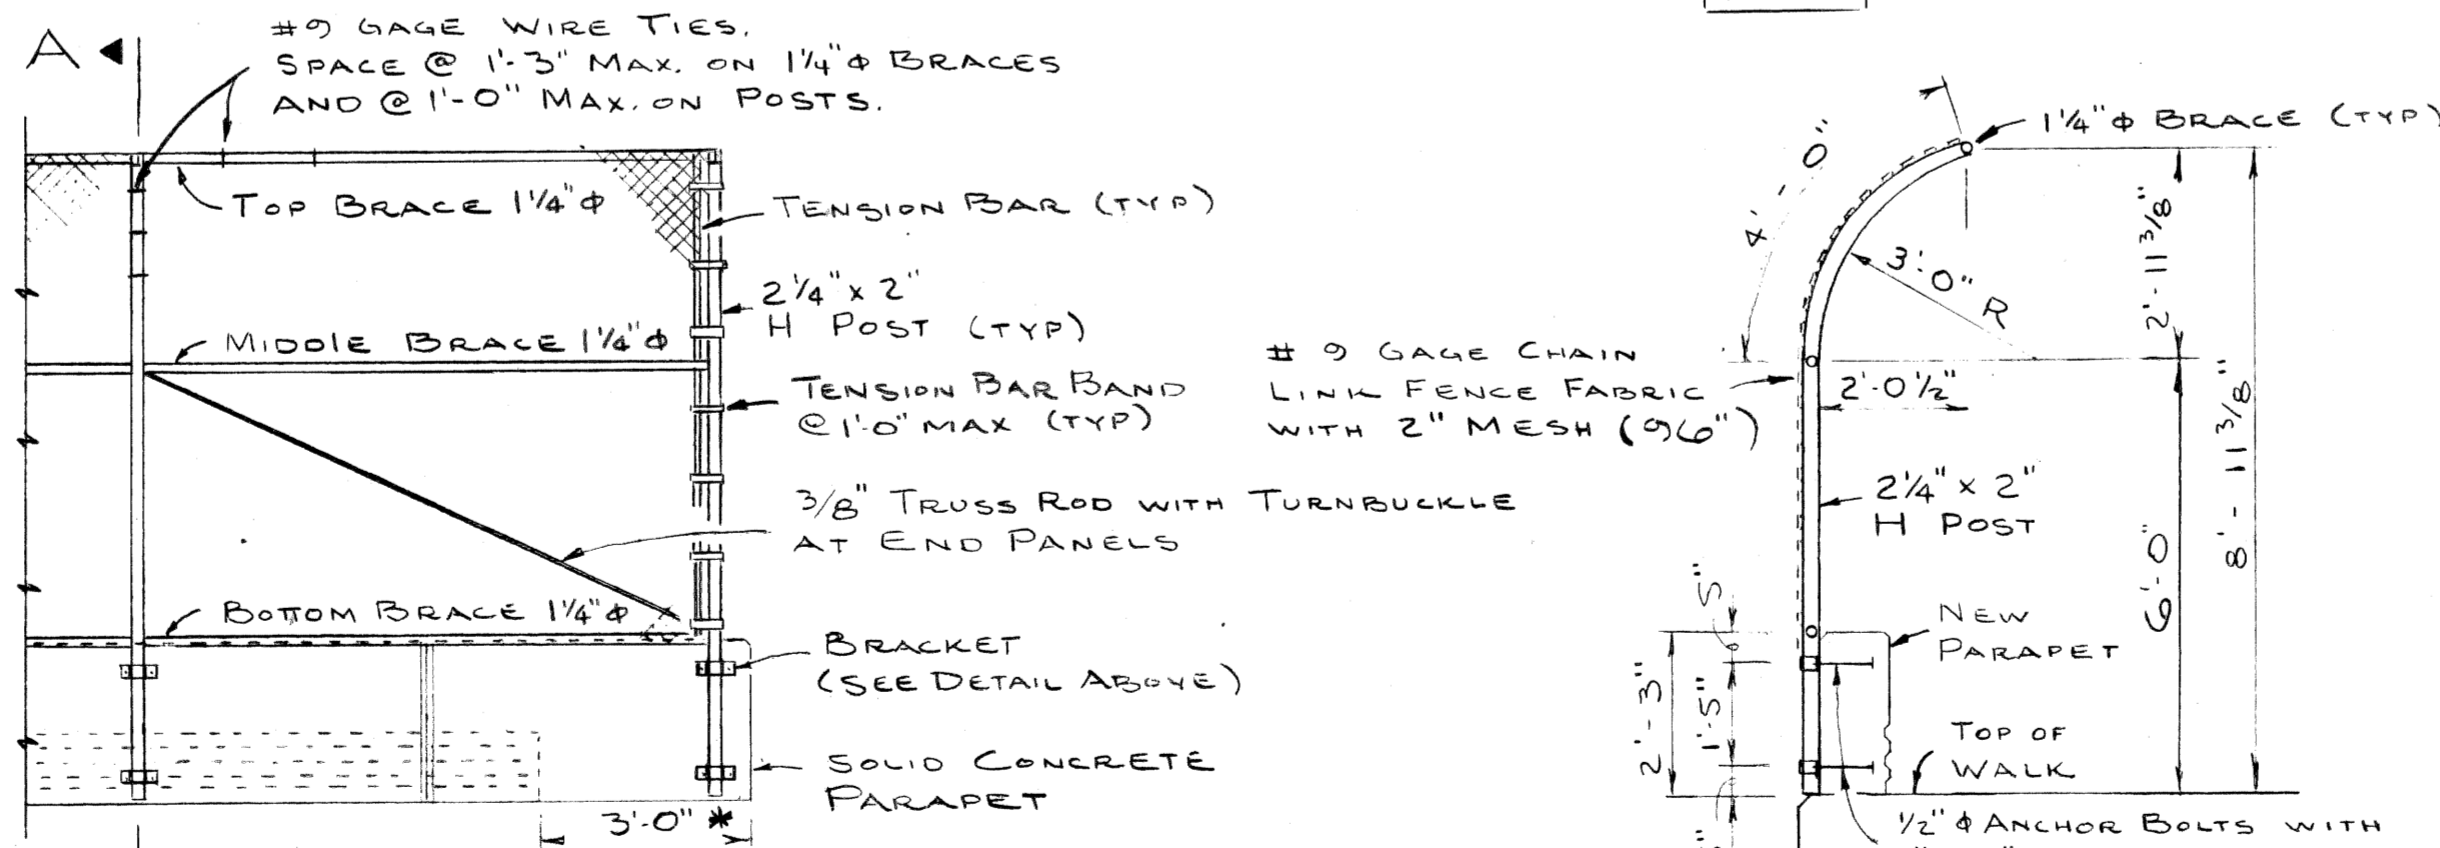 A
#9 GAGE WIRE TIES.
SPACE @ 1'-3" MAX. ON 1¼"ϕ BRACES
AND @ 1'-0" MAX. ON POSTS.
TOP BRACE 1¼"ϕ
TENSION BAR (TYP)
2¼" x 2"
H POST (TYP)
MIDDLE BRACE 1¼"ϕ
TENSION BAR BAND
@ 1'-0" MAX (TYP)
3/8" TRUSS ROD WITH TURNBUCKLE
AT END PANELS
BOTTOM BRACE 1¼"ϕ
BRACKET
(SEE DETAIL ABOVE)
SOLID CONCRETE
PARAPET
3'-0" *
1¼"ϕ BRACE (TYP)
4'-0"
3'-0" R
2'-11 3/8"
# 9 GAGE CHAIN
LINK FENCE FABRIC
WITH 2" MESH (96")
2'-0½"
8'-11 3/8"
2¼" x 2"
H POST
6'-0"
5"
NEW
PARAPET
2'-3"
1'-5"
TOP OF
WALK
½"ϕ ANCHOR BOLTS WITH